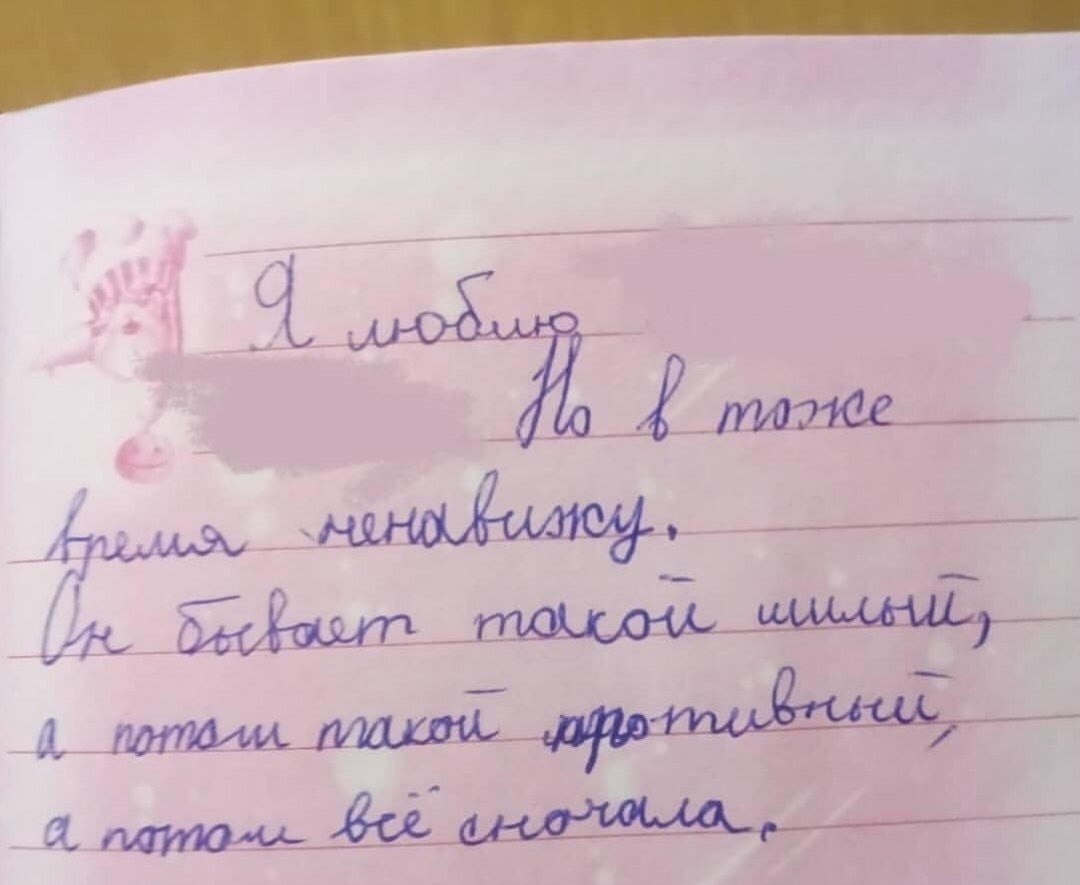 Я люблю
Но в тоже
время ненавижу.
Он бывает такой милый,
а потом такой противный,
а потом всё сночала.